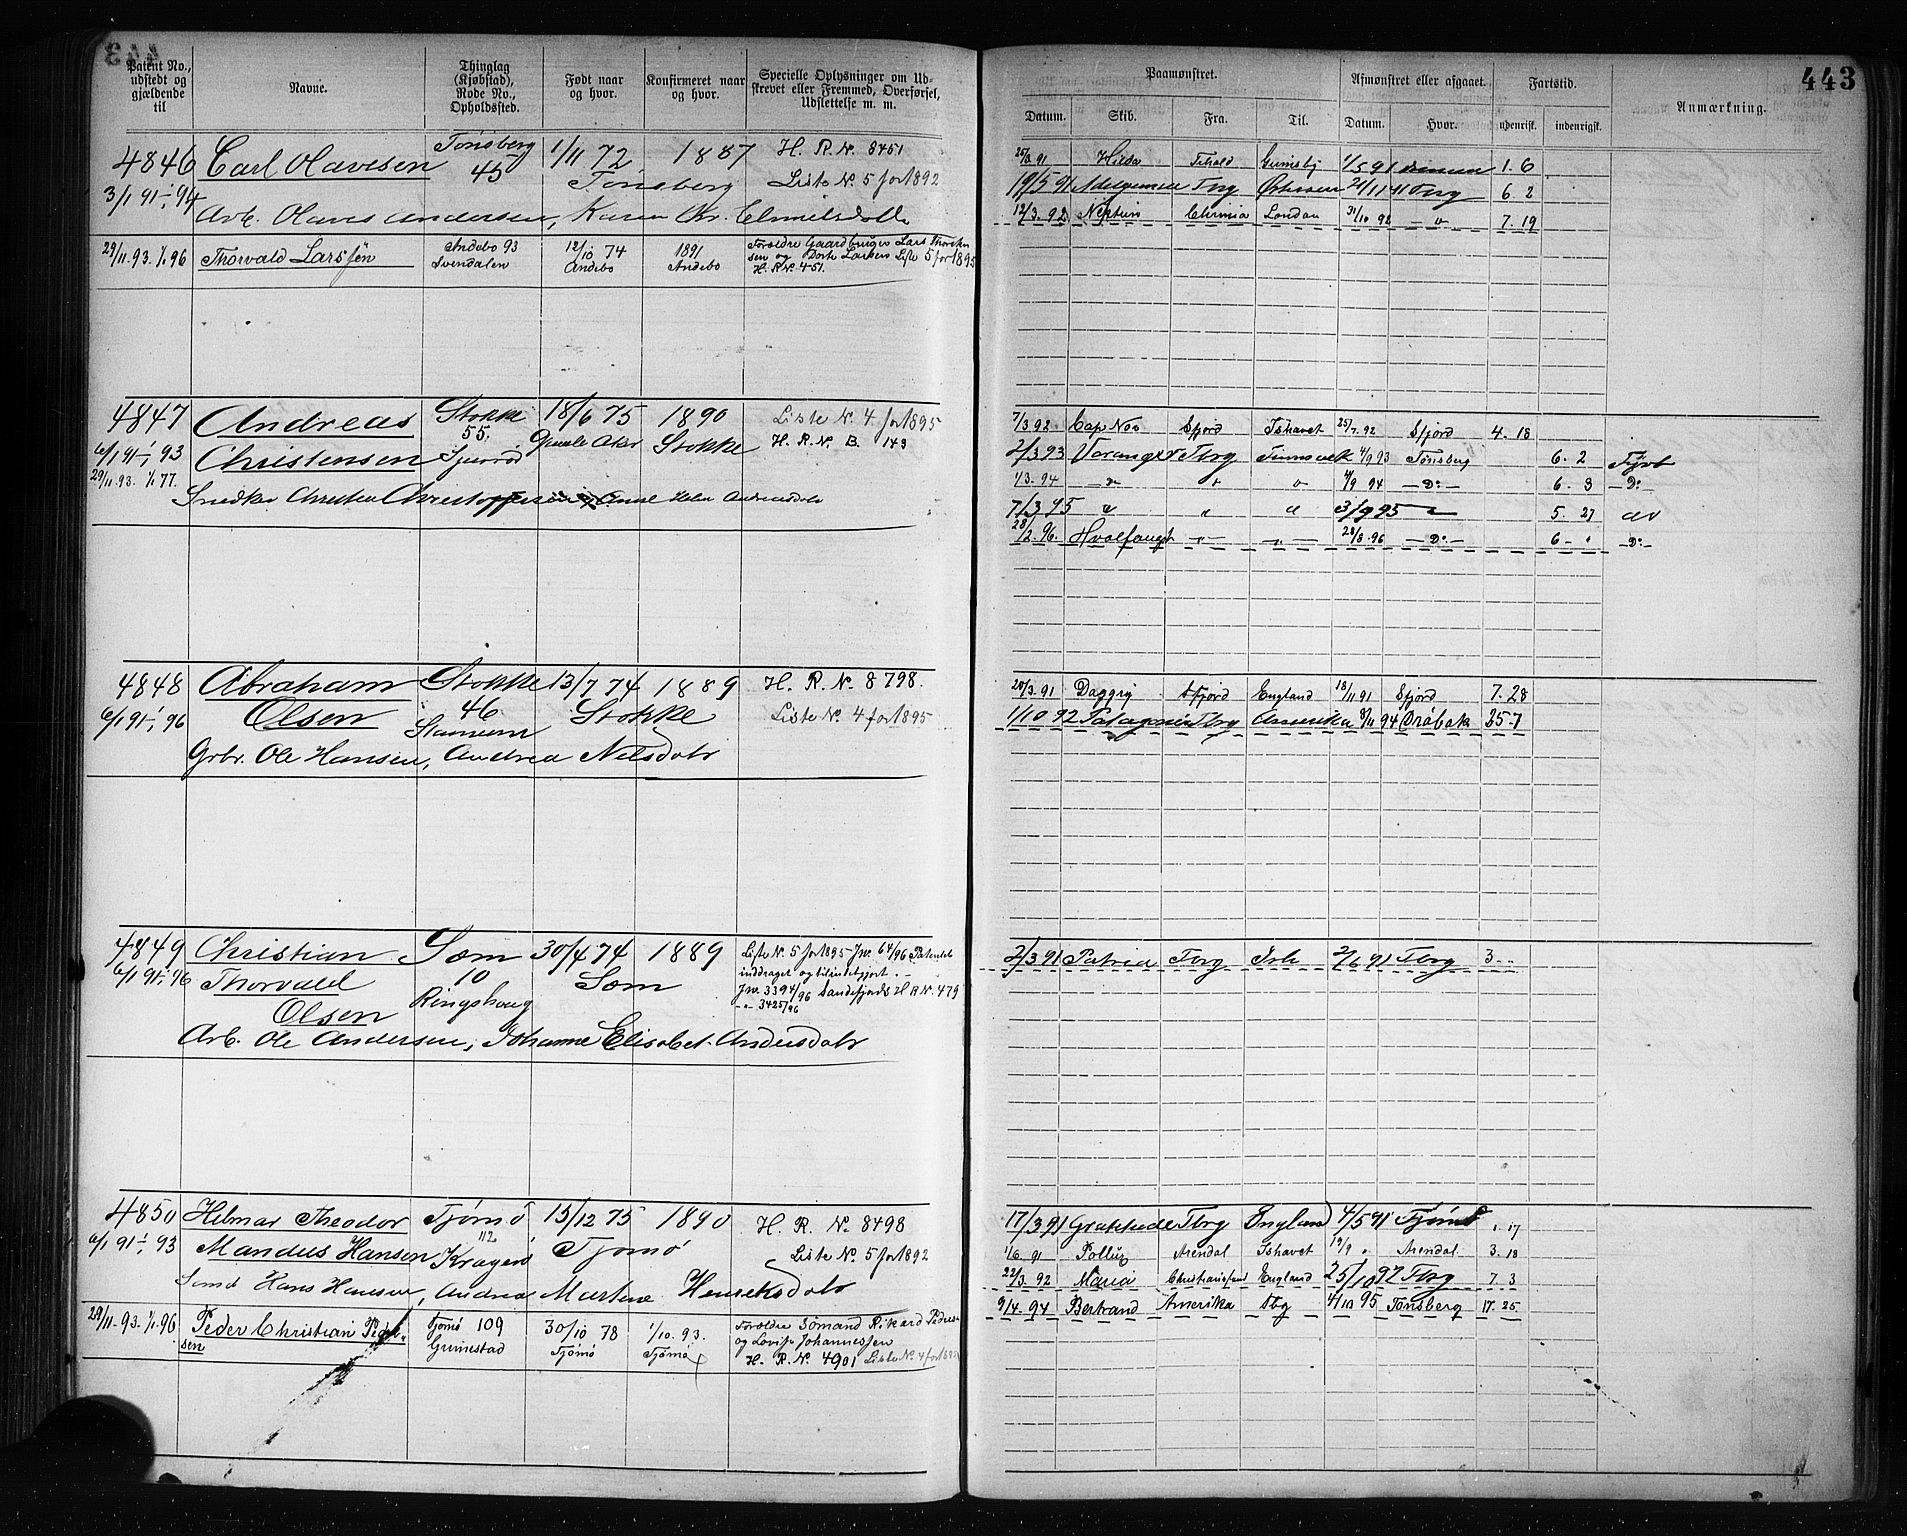 443
Patent No., udstedt og gjældende til
Navne.
Thinglag (Kjøbstad), Rode No., Opholdssted.
Født naar og hvor.
Konfirmeret naar og hvor.
Specielle Oplysninger om Udskrevet eller Fremmed, Overførsel, Udslettelse m. m.
Paamønstret.
Afmønstret eller afgaaet.
Fartstid.
Anmærkning.
Datum. Skib. Fra. Til. Datum. Hvor. udenrigsk. indenrigsk.
4846 Carl Olavesen Tønsberg 1/11 72 1887 H. R. N. 8451
3/1 91 - 1/1 94 45 Tønsberg Liste N. 5 for 1892
Arb. Olaves Andersen, Karen Kr.
25/3 91 Hilda Grimsby 1/5 91 1. 6
19/5 91 Tbrg 21/11 91 Tbrg 6. 2
12/3. 92 Neptun London 31/10 92 7. 19
29/11. 93. 1/1. 96 Thorvald Larssen Andebo 93 12/10 74 1891 Forældre Gaardbruger Lars
Svendalen Andebo Andebo sen og Dorte Larsen Liste 5 for 1895
H. R. N. 451.
4847 Andreas Stokke 18/6 75 1890 Liste N. 4 for 1895
6/1 91 - 1/1 93 Christensen 55. Stokke H. R. N. B. 143
29/11. 93. 1/1 77.
Snedker Christen Christoffersen
7/3 92 Cap Nor Sfjord Ishavet 25/7. 92 Sfjord 4. 18
2/3 93 Varanger Tbrg 4/9 93 Tønsberg 6. 2
1/3. 94 — " — " " 4/9 94 — D: — 6. 3 — D: —
7/3 95 " " " 3/9 95 5. 27
28/2. 96. Hvalfangst — " — — " — 28/8. 96 — D: — 6 - " — D: —
4848 Abraham Stokke 13/7 74 1889 H. R. N. 8798.
6/1 91 - 1/1 96 Olsen 46 Stokke Liste N. 4 for 1895
Grbr. Ole Hansen, Andrea Nilsdatr
20/3. 91 Daggry Sfjord England 18/11 91 Sfjord 7. 28
1/10 92 Patagonia Tbrg Amerika 8/11 94 Drøbak 25-7
4849 Christian Sæm 30/4 74 1889 Liste N. 5 for 1895 Jn. 64/96 Patentet
6/1 91 - 1/1 96 Thorvald 10 Sæm inddraget og tilintetgjort.
Olsen Ringshaug Jn. 3394/96 Sandefjords H. R. N. 479
— " — 3425/96
Arb. Ole Andersen, Johanne Elisabet Andersdatr
2/3 91 Patria Tbrg Ish 2/6 91 Tbrg 3. "
4850 Hilmar Theodor Tjømø 15/12 75 1890 H. R. N. 8498
6/1 91 - 1/1 93 Mandus Hansen 112 Tjømø Liste N. 5 for 1892
Kragerø
Sømd Hans Hansen, Andrea Martine Henriksdatr
17/3 91 Tbrg England 4/5 91 Tjømø 1. 17
1/6. 91 Pollux Arendal Ishavet 19/9 " Arendal 3. 18
22/3. 92 Maria England 25/10 92 Tbrg 7. 3
9/4. 94 Bertrand Amerika tbg 4/10 95 Tønsberg 17. 25
29/11. 93. 1/1. 96 Peder Christian Pedersen Tjømø 109 30/10 78 1/10. 93. Forældre Sömand Rikard Peders
Grimestad Tjømø Tjømø og Lovise Johannessen
H. R. N. 4901 Liste N. 4 for